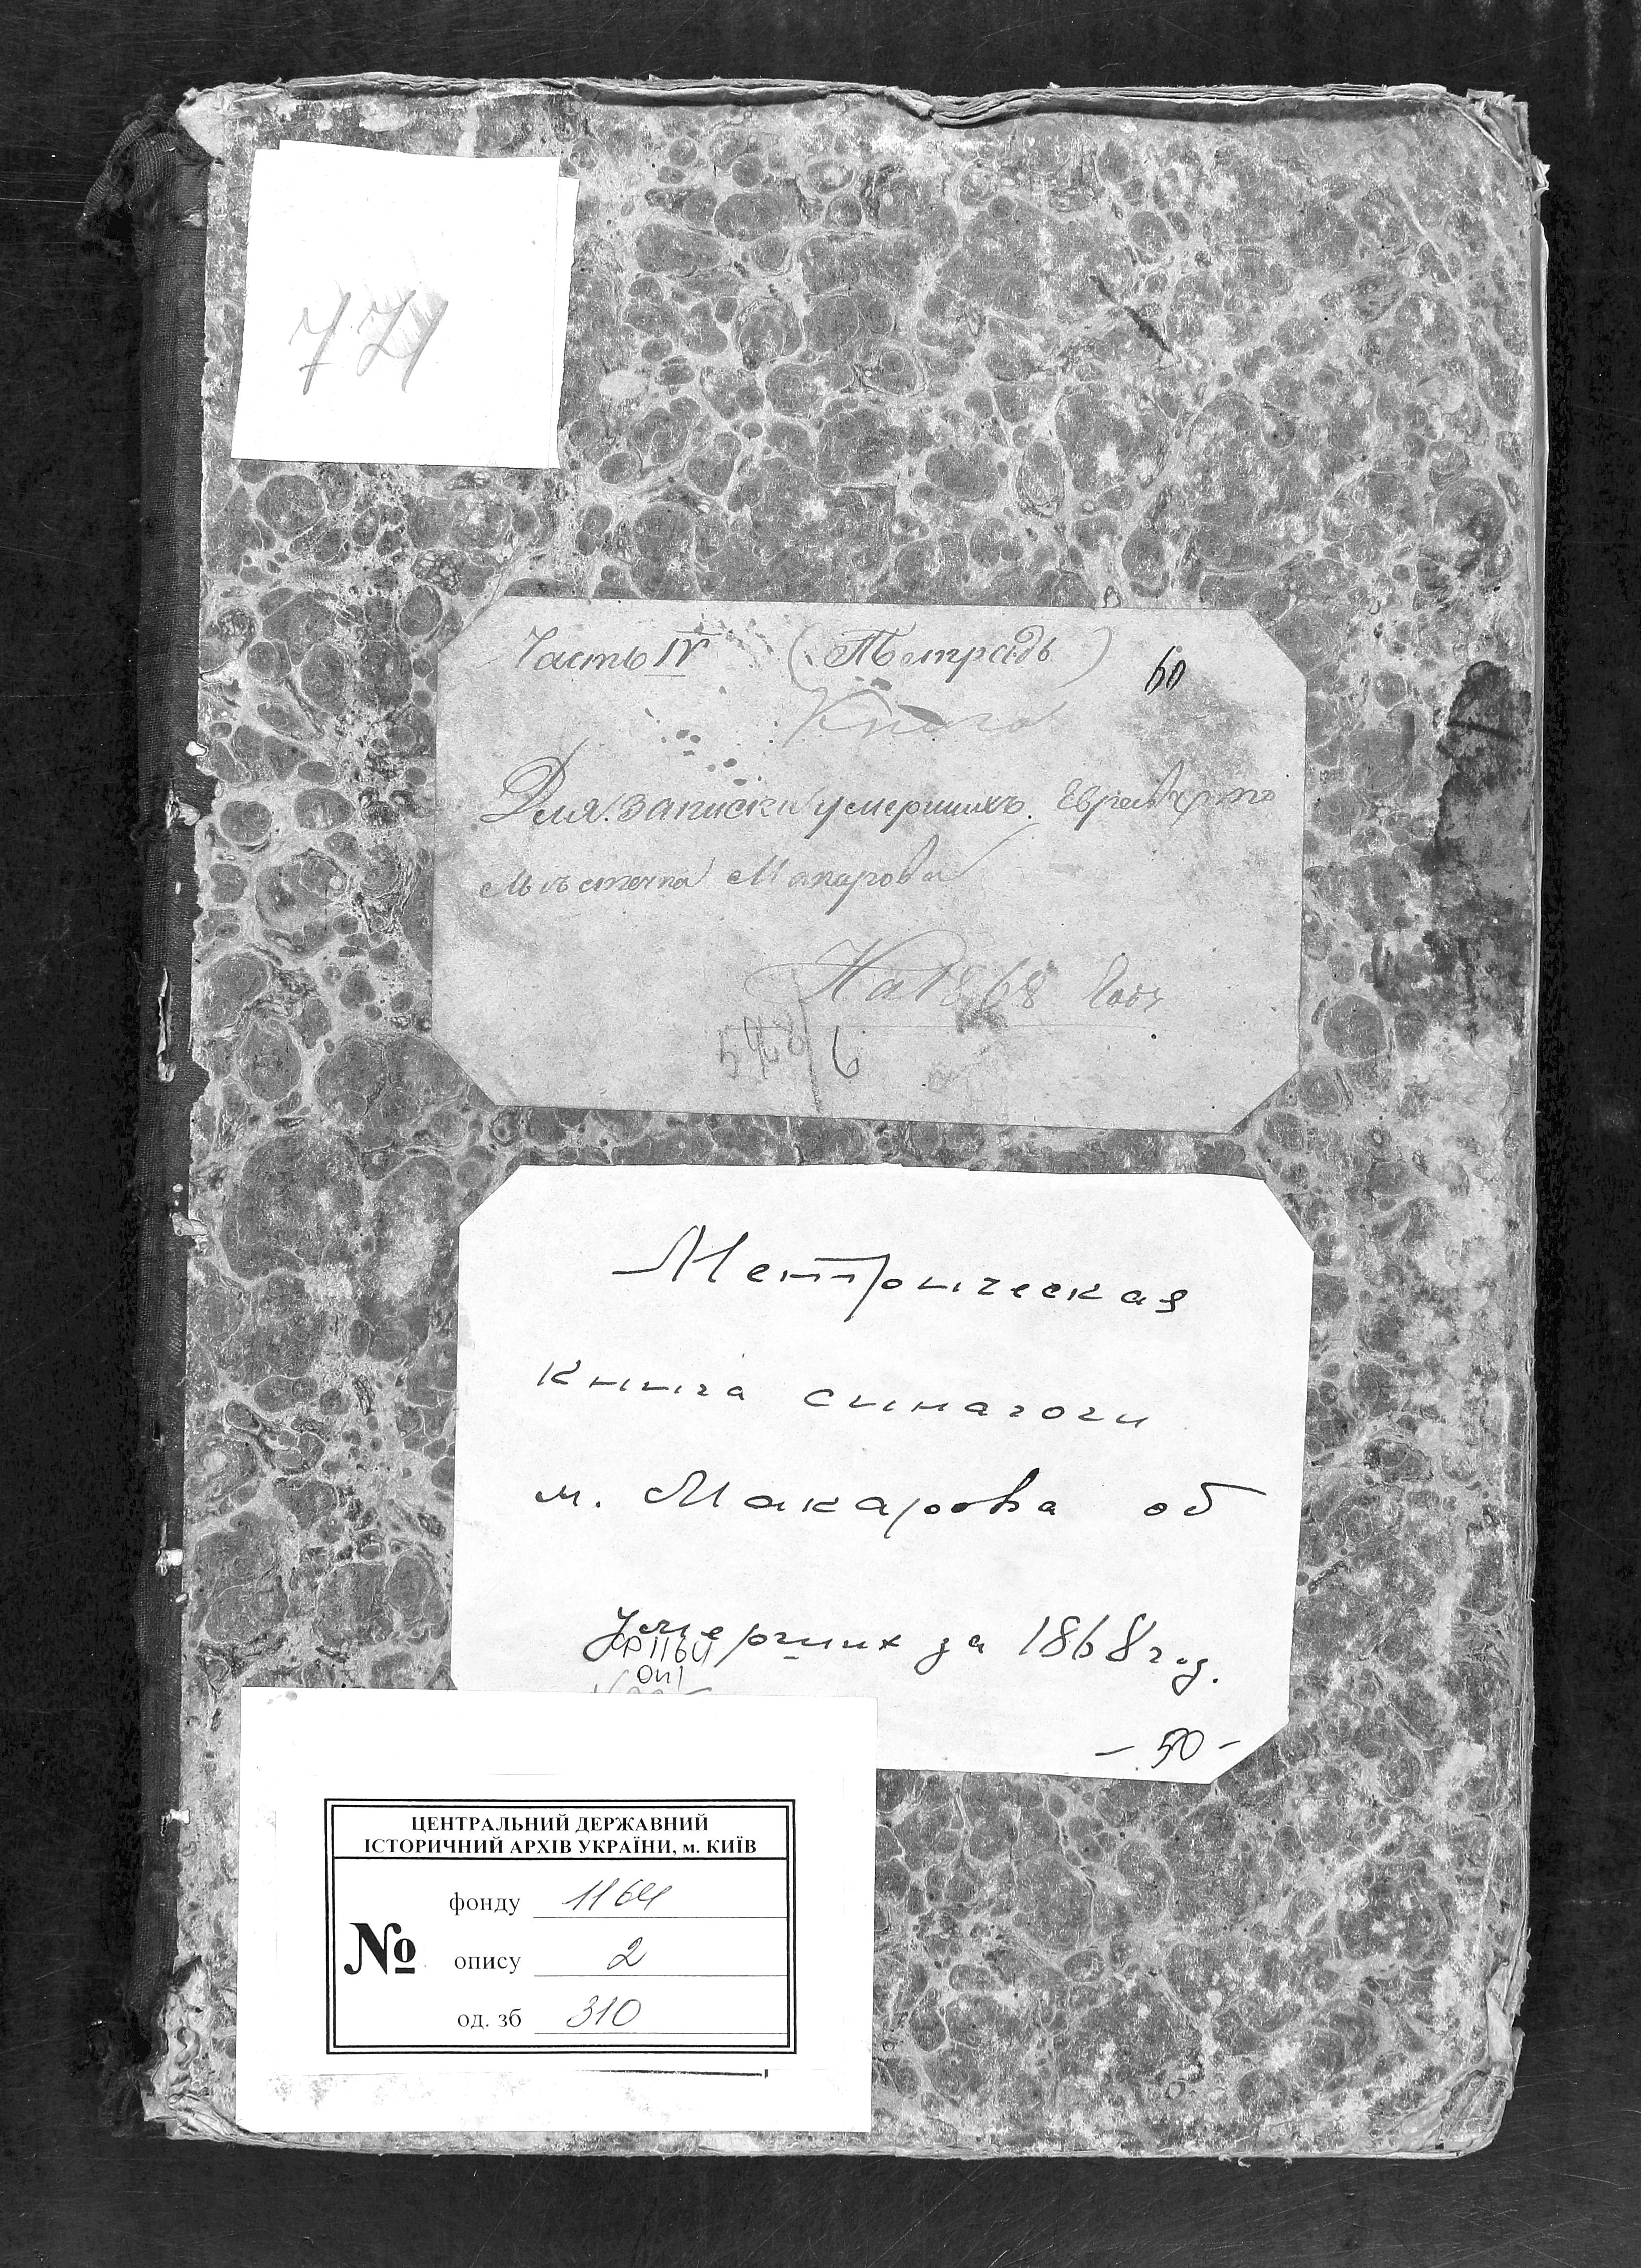 771
Часть IV (Тетрадь)
60
Книга
Для записки умершихъ Евреевъ
Мѣстечка Макарова
На 1868 Годъ
6
Метрическая
книга синагоги
м. Макарова об
умерших за 1868 год.
Ф 1164
оп 1
- 50 -
ЦЕНТРАЛЬНИЙ ДЕРЖАВНИЙ
ІСТОРИЧНИЙ АРХІВ УКРАЇНИ, м. КИЇВ
№
фонду 1164
опису 2
од. зб 310